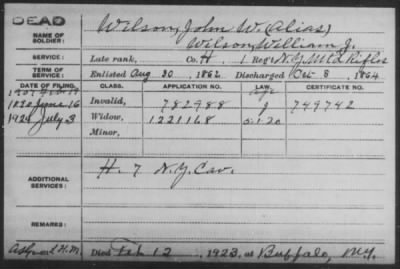 DEAD
NAME OF SOLDIER: Wilson, John W. (Alias)
Wilson, William J.
SERVICE: Late rank, Co. H, 1 Reg't N.Y. Mtd Rifles
TERM OF SERVICE: Enlisted Aug 30, 1862 Discharged Oct 8, 1864
DATE OF FILING. CLASS. APPLICATION NO. LAW. CERTIFICATE NO.
1890 June 16 Invalid, 782988 J 749742
1923 July 3 Widow, 1221168 5.1.20
Minor,
ADDITIONAL SERVICES: H. 7 N.Y. Cav.
REMARKS:
Died Feb 12, 1923, at Buffalo, N.Y.